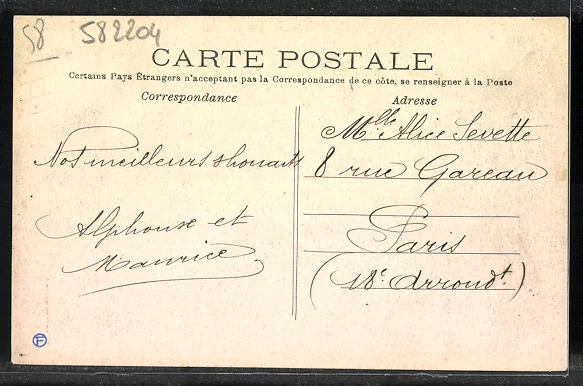 58
582204
CARTE POSTALE
Certains Pays Étrangers n'acceptant pas la Correspondance de ce côte, se renseigner à la Poste
Correspondance
Adresse
Nos meilleurs souhaits
Alphonse et
Maurice
Mlle Alice Sevette
8 rue Gareau
Paris
(18e Arrondt)
F